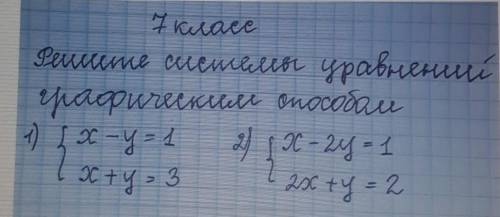 7 класс
Решите системы уравнений
графическим способом
1) { x - y = 1 2) { x - 2y = 1
x + y = 3 2x + y = 2